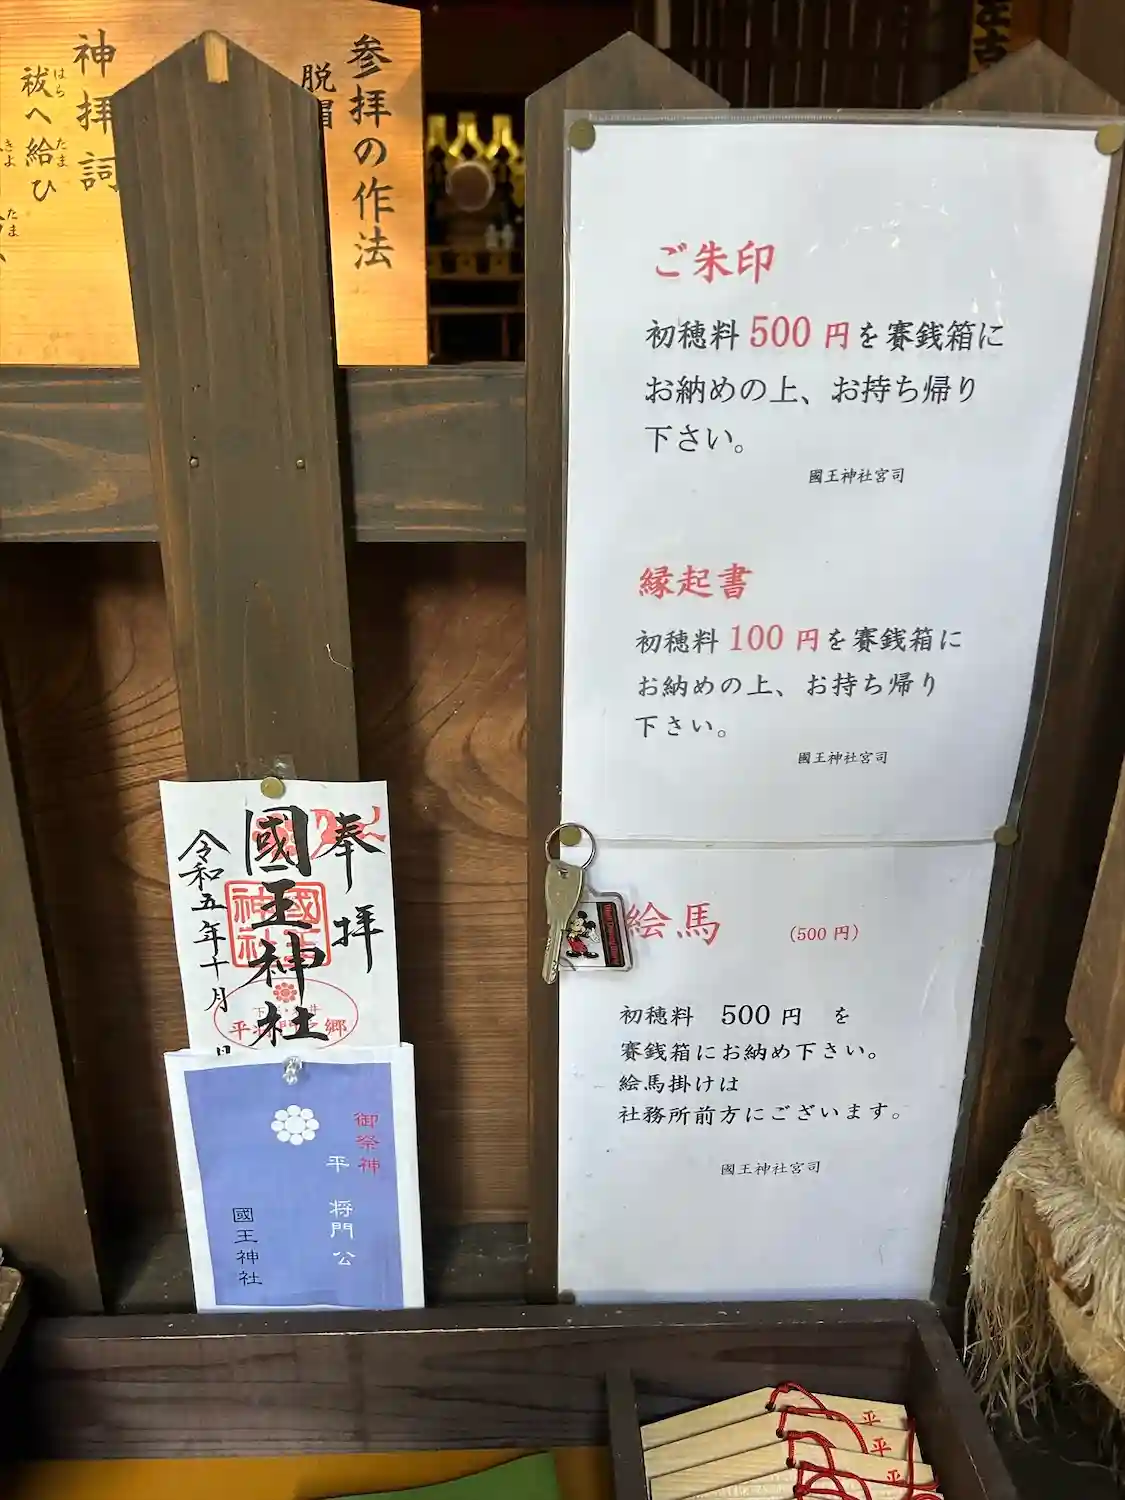 参拝の作法
脱帽
神拝詞
祓へ給ひ
はら
たま
きよ
たま
ご朱印
初穂料 500 円を賽銭箱に
お納めの上、お持ち帰り
下さい。
國王神社宮司
縁起書
初穂料 100 円を賽銭箱に
お納めの上、お持ち帰り
下さい。
國王神社宮司
絵馬 (500 円)
初穂料 500 円 を
賽銭箱にお納め下さい。
絵馬掛けは
社務所前方にございます。
國王神社宮司
奉拝
國王神社
令和五年十月
御祭神
平 将門 公
國王神社
平
平
平